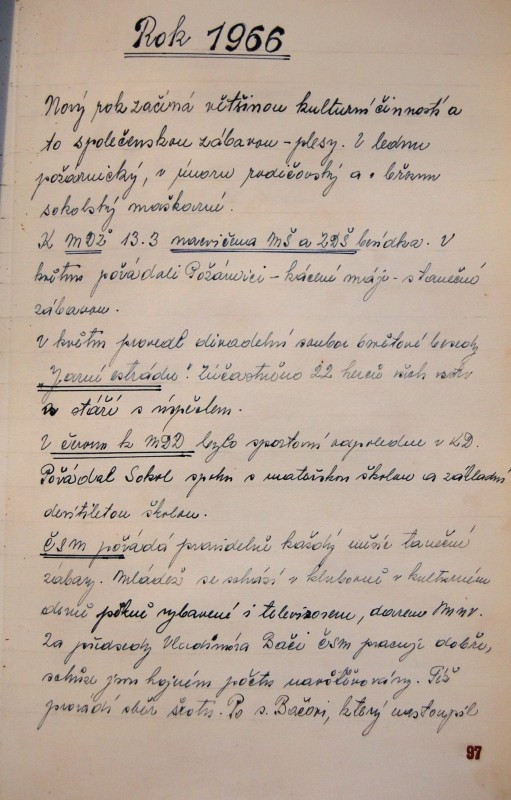 Rok 1966
Nový rok začíná většinou kulturní činností a
to společenskou zábavou - plesy. V lednu
požárnický, v únoru rodičovský a v březnu
sokolský maškarní.
K MDŽ 13.3 nacvičena MŠ a ZDŠ besídka. V
květnu pořádali Požárníci - kácení máje - s taneční
zábavou.
V květnu provedl divadelní soubor Osvětové besedy
„Jarní estrádu". Zúčastněno 22 herců všech
a stáří s úspěchem.
V červnu k MDD bylo sportovní odpoledne v KD.
Pořádal Sokol spolu s mateřskou školou a základní
devítiletou školou.
ČSM pořádá pravidelně každý měsíc taneční
zábavy. Mládež se schází v klubovně v kulturním
domě pěkně vybavené i televizorem, darem MNV.
Za předsedy Vladimíra Bači ČSM pracuje dobře,
schůze jsou hojném počtu navštěvovány. Též
provádí sběr šrotu. Po s. Bačovi, který nastoupil
97